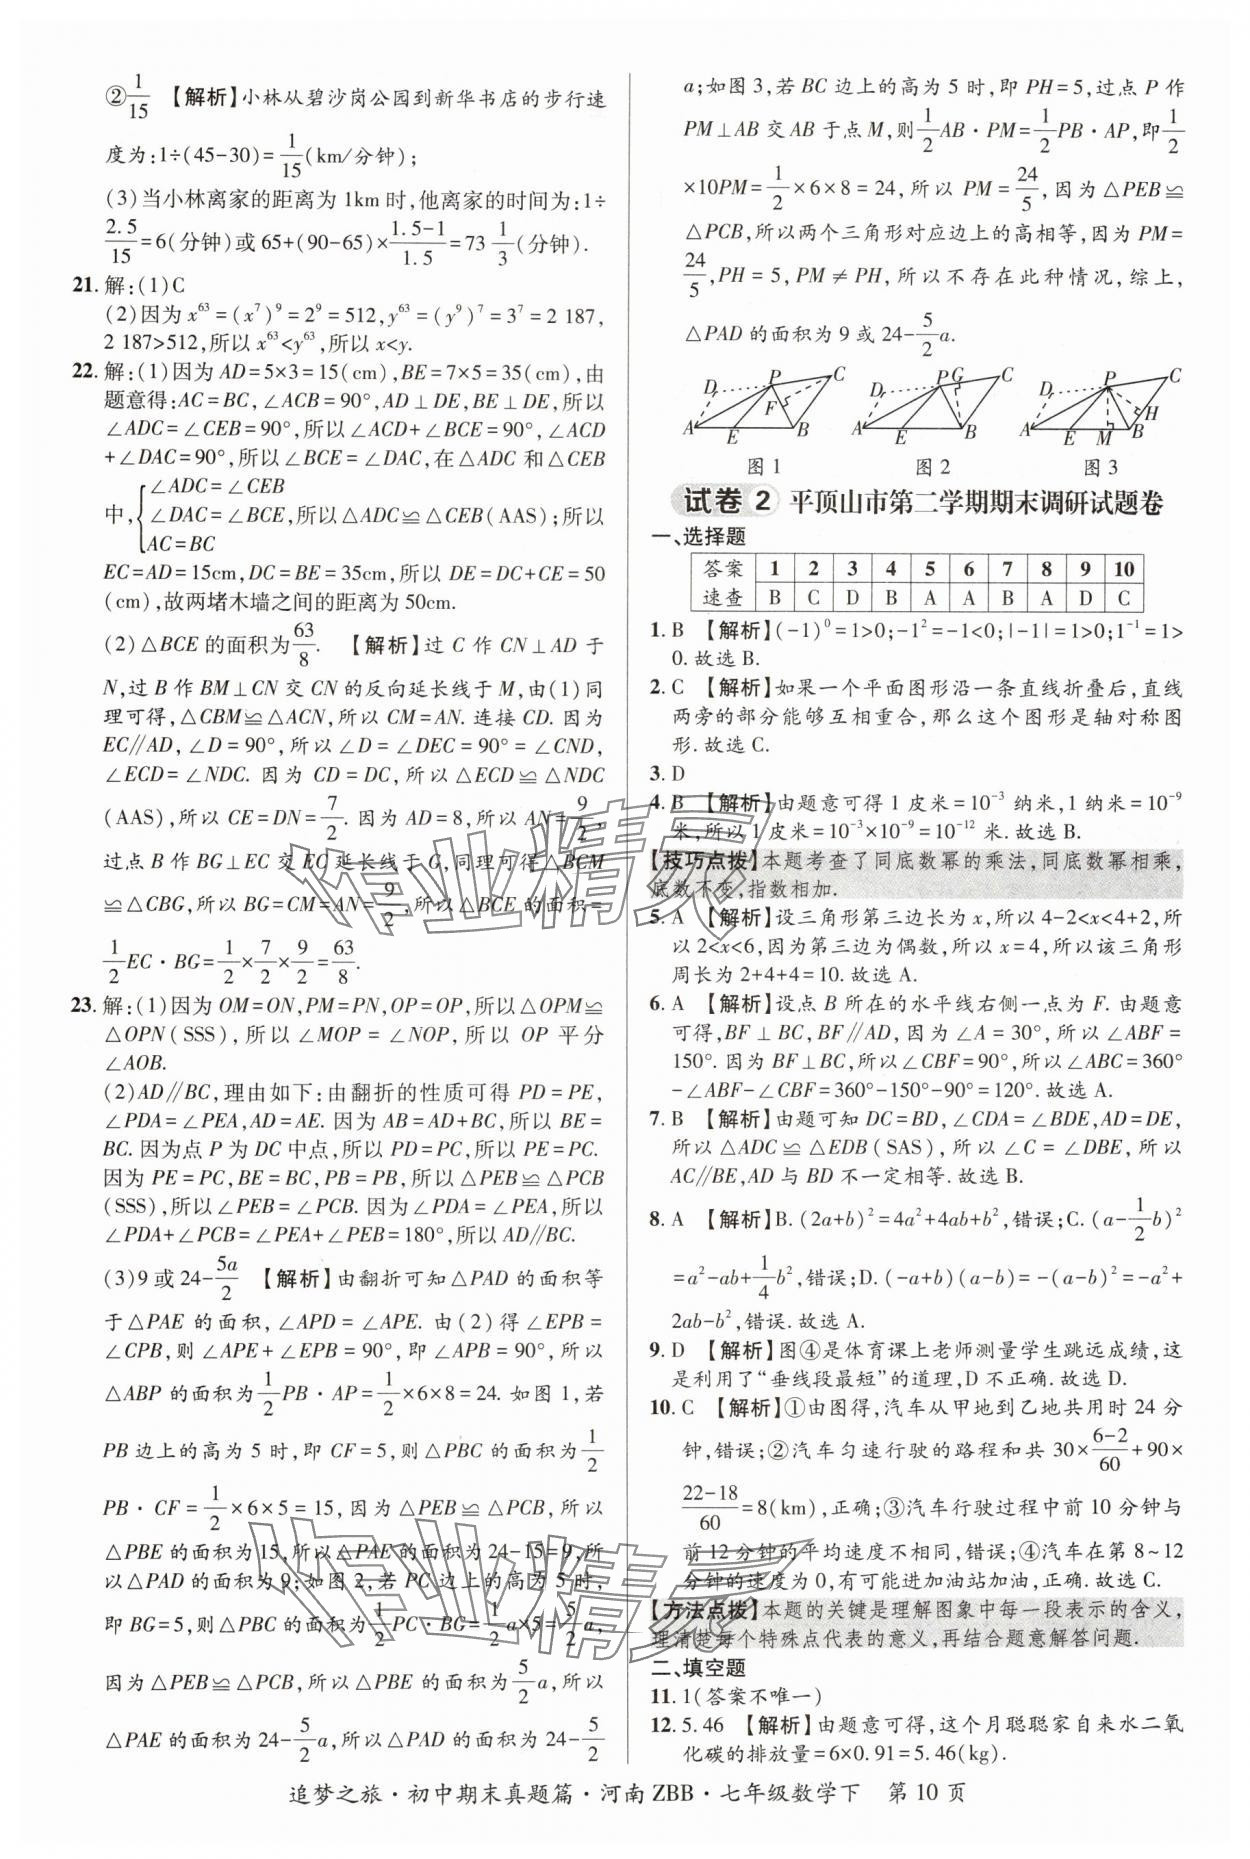 ②1/15 【解析】小林从碧沙岗公园到新华书店的步行速
度为:1÷(45-30)=1/15(km/分钟);
(3)当小林离家的距离为1km时,他离家的时间为:1÷
2.5/15=6(分钟)或65+(90-65)×(1.5-1)/1.5=73 1/3(分钟).
21.解:(1)C
(2)因为x^63=(x^7)^9=2^9=512,y^63=(y^9)^7=3^7=2 187,
2 187>512,所以x^63<y^63,所以x<y.
22.解:(1)因为AD=5×3=15(cm),BE=7×5=35(cm),由
题意得:AC=BC,∠ACB=90°,AD⊥DE,BE⊥DE,所以
∠ADC=∠CEB=90°,所以∠ACD+∠BCE=90°,∠ACD
+∠DAC=90°,所以∠BCE=∠DAC,在△ADC和△CEB
中,{∠ADC=∠CEB
∠DAC=∠BCE,所以△ADC≌△CEB(AAS);所以
AC=BC
EC=AD=15cm,DC=BE=35cm,所以DE=DC+CE=50
(cm),故两堵木墙之间的距离为50cm.
(2)△BCE的面积为63/8. 【解析】过C作CN⊥AD于
N,过B作BM⊥CN交CN的反向延长线于M,由(1)同
理可得,△CBM≌△ACN,所以CM=AN.连接CD.因为
EC∥AD,∠D=90°,所以∠D=∠DEC=90°=∠CND,
∠ECD=∠NDC.因为CD=DC,所以△ECD≌△NDC
(AAS),所以CE=DN=7/2.因为AD=8,所以AN=9/2,
过点B作BG⊥EC交EC延长线于G,同理可得△BCM
≌△CBG,所以BG=CM=AN=9/2,所以△BCE的面积=
1/2EC·BG=1/2×7/2×9/2=63/8.
23.解:(1)因为OM=ON,PM=PN,OP=OP,所以△OPM≌
△OPN(SSS),所以∠MOP=∠NOP,所以OP平分
∠AOB.
(2)AD∥BC,理由如下:由翻折的性质可得PD=PE,
∠PDA=∠PEA,AD=AE.因为AB=AD+BC,所以BE=
BC.因为点P为DC中点,所以PD=PC,所以PE=PC.
因为PE=PC,BE=BC,PB=PB,所以△PEB≌△PCB
(SSS),所以∠PEB=∠PCB.因为∠PDA=∠PEA,所以
∠PDA+∠PCB=∠PEA+∠PEB=180°,所以AD∥BC.
(3)9或24-5a/2 【解析】由翻折可知△PAD的面积等
于△PAE的面积,∠APD=∠APE.由(2)得∠EPB=
∠CPB,则∠APE+∠EPB=90°,即∠APB=90°,所以
△ABP的面积为1/2PB·AP=1/2×6×8=24.如图1,若
PB边上的高为5时,即CF=5,则△PBC的面积为1/2
PB·CF=1/2×6×5=15,因为△PEB≌△PCB,所以
△PBE的面积为15,所以△PAE的面积为24-15=9,所
以△PAD的面积为9;如图2,若PC边上的高为5时,
即BG=5,则△PBC的面积为1/2PC·BG=1/2a×5=5/2a,
因为△PEB≌△PCB,所以△PBE的面积为5/2a,所以
△PAE的面积为24-5/2a,所以△PAD的面积为24-5/2
a;如图3,若BC边上的高为5时,即PH=5,过点P作
PM⊥AB交AB于点M,则1/2AB·PM=1/2PB·AP,即1/2
×10PM=1/2×6×8=24,所以PM=24/5,因为△PEB≌
△PCB,所以两个三角形对应边上的高相等,因为PM=
24/5,PH=5,PM≠PH,所以不存在此种情况,综上,
△PAD的面积为9或24-5/2a.
D P C F A E B
D P G C A E B
D P C H A E M B
图1 图2 图3
试卷2 平顶山市第二学期期末调研试题卷
一、选择题
答案 1 2 3 4 5 6 7 8 9 10
速查 B C D B A A B A D C
1. B 【解析】(-1)^0=1>0;-1^2=-1<0;|-1|=1>0;1^-1=1>
0.故选B.
2. C 【解析】如果一个平面图形沿一条直线折叠后,直线
两旁的部分能够互相重合,那么这个图形是轴对称图
形.故选C.
3. D
4. B 【解析】由题意可得1皮米=10^-3纳米,1纳米=10^-9
米,所以1皮米=10^-3×10^-9=10^-12米.故选B.
【技巧点拨】本题考查了同底数幂的乘法,同底数幂相乘,
底数不变,指数相加.
5. A 【解析】设三角形第三边长为x,所以4-2<x<4+2,所
以2<x<6,因为第三边为偶数,所以x=4,所以该三角形
周长为2+4+4=10.故选A.
6. A 【解析】设点B所在的水平线右侧一点为F.由题意
可得,BF⊥BC,BF∥AD,因为∠A=30°,所以∠ABF=
150°.因为BF⊥BC,所以∠CBF=90°,所以∠ABC=360°
-∠ABF-∠CBF=360°-150°-90°=120°.故选A.
7. B 【解析】由题可知DC=BD,∠CDA=∠BDE,AD=DE,
所以△ADC≌△EDB(SAS),所以∠C=∠DBE,所以
AC∥BE,AD与BD不一定相等.故选B.
8. A 【解析】B.(2a+b)^2=4a^2+4ab+b^2,错误;C.(a-1/2b)^2
=a^2-ab+1/4b^2,错误;D.(-a+b)(a-b)=-(a-b)^2=-a^2+
2ab-b^2,错误.故选A.
9. D 【解析】图④是体育课上老师测量学生跳远成绩,这
是利用了“垂线段最短”的道理,D不正确.故选D.
10. C 【解析】①由图得,汽车从甲地到乙地共用时24分
钟,错误;②汽车匀速行驶的路程和共30×(6-2)/60+90×
(22-18)/60=8(km),正确;③汽车行驶过程中前10分钟与
前12分钟的平均速度不相同,错误;④汽车在第8~12
分钟的速度为0,有可能进加油站加油,正确.故选C.
【方法点拨】本题的关键是理解图象中每一段表示的含义,
理清楚每个特殊点代表的意义,再结合题意解答问题.
二、填空题
11. 1(答案不唯一)
12. 5.46 【解析】由题意可得,这个月聪聪家自来水二氧
化碳的排放量=6×0.91=5.46(kg).
追梦之旅·初中期末真题篇·河南ZBB·七年级数学下 第10页
作业精灵
作业精灵